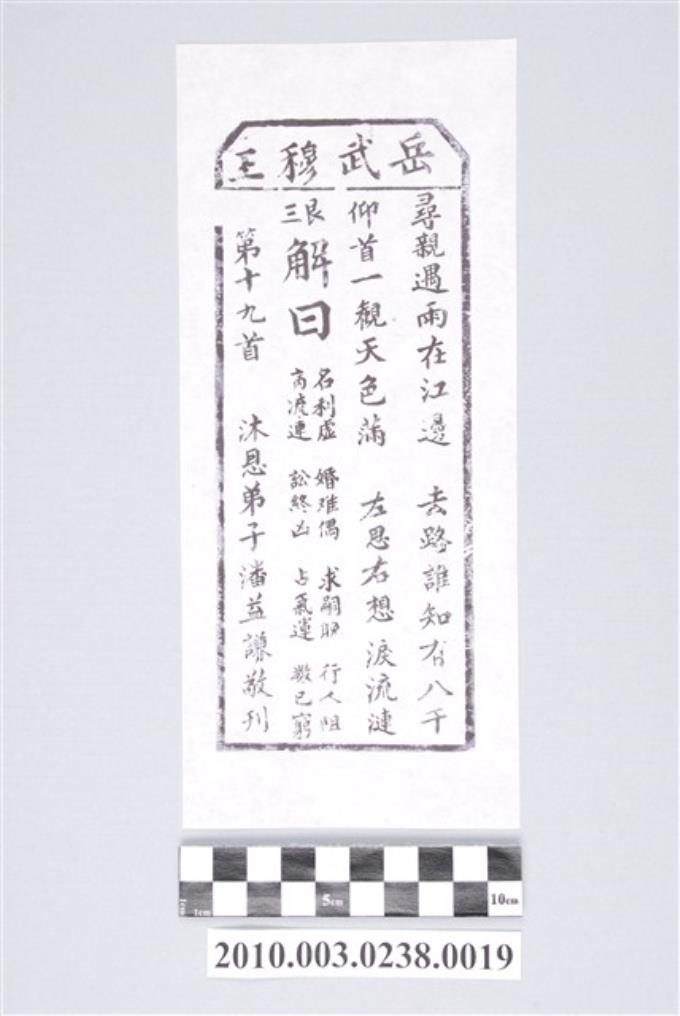 岳武穆王
尋親遇雨在江邊 去路誰知有八千
仰首一觀天色滿 左思右想淚流漣
艮三
解曰
名利虛 婚難偶 求嗣 行人阻
訟終凶 占氣運 數已窮
第十九首 沐恩弟子潘益謙敬刊
1cm
1cm
5cm
10cm
2010.003.0238.0019